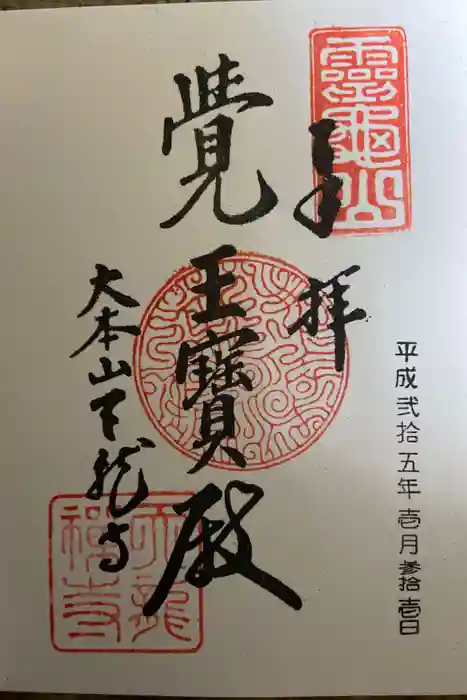 奉拝
平成弐拾五年壱月参拾壱日
覺王寶殿
大本山天龍寺
靈龜山
天龍禅寺